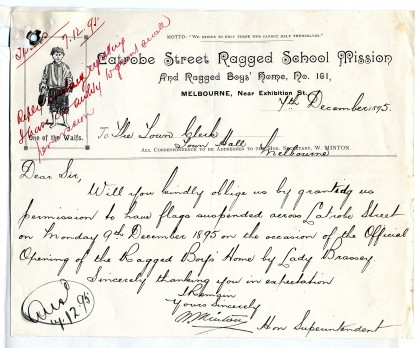 MOTTO: "WE STRIVE TO HELP THOSE WHO CANNOT HELP THEMSELVES."
Latrobe Street Ragged School Mission
And Ragged Boys' Home, No. 161,
MELBOURNE, Near Exhibition St.
7.12.95
Reply
I have no authority to grant such
permission
One of the Waifs.
7th December 1895.
To The Town Clerk
Town Hall
Melbourne
ALL CORRESPONDENCE TO BE ADDRESSED TO THE HON. SECRETARY, W. MINTON.
Dear Sir,
Will you kindly oblige us by granting us
permission to have flags suspended across LaTrobe Street
on Monday 9th December 1895 on the occasion of the Official
Opening of the Ragged Boys' Home by Lady Brassey.
Sincerely thanking you in expectation
I Remain
Yours Sincerely
W Minton
Hon Superintendent
Ansd
7.12.95